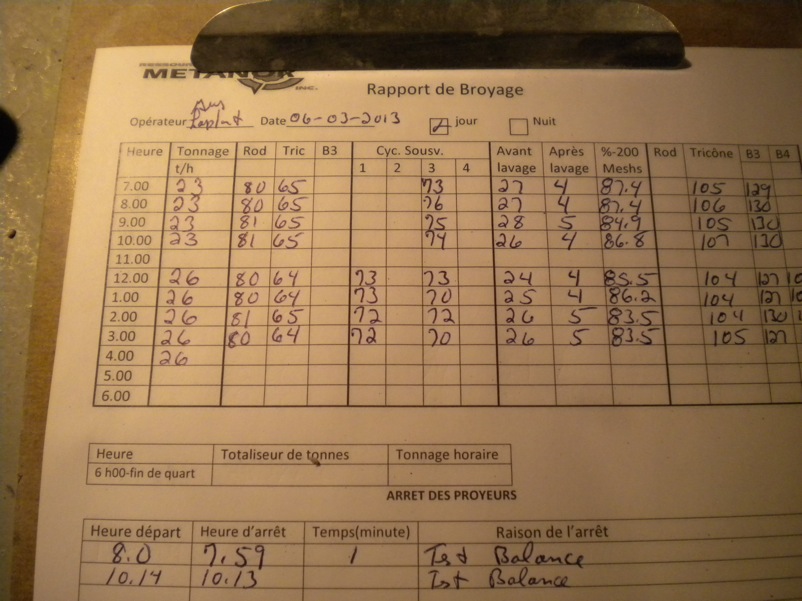 METANOR
INC.
Rapport de Broyage
Opérateur Date 06-03-2013 jour Nuit
Heure Tonnage Rod Tric B3 Cyc. Sousv. Avant Après %-200 Rod Tricône B3 B4
t/h 1 2 3 4 lavage lavage Meshs
7.00 23 80 65 73 27 4 87.4 105 129
8.00 23 80 65 76 27 4 87.4 106 130
9.00 23 81 65 75 28 5 84.9 105 130
10.00 23 81 65 74 26 4 86.8 107 130
11.00
12.00 26 80 64 73 73 24 4 85.5 104 127
1.00 26 80 64 73 70 25 4 86.2 104 127
2.00 26 81 65 72 72 26 5 83.5 104 130
3.00 26 80 64 72 70 26 5 83.5 105 127
4.00 26
5.00
6.00
Heure Totaliseur de tonnes Tonnage horaire
6 h00-fin de quart
ARRET DES PROYEURS
Heure départ Heure d'arrêt Temps(minute) Raison de l'arrêt
8.0 7.59 1 Test Balance
10.14 10.13 Test Balance